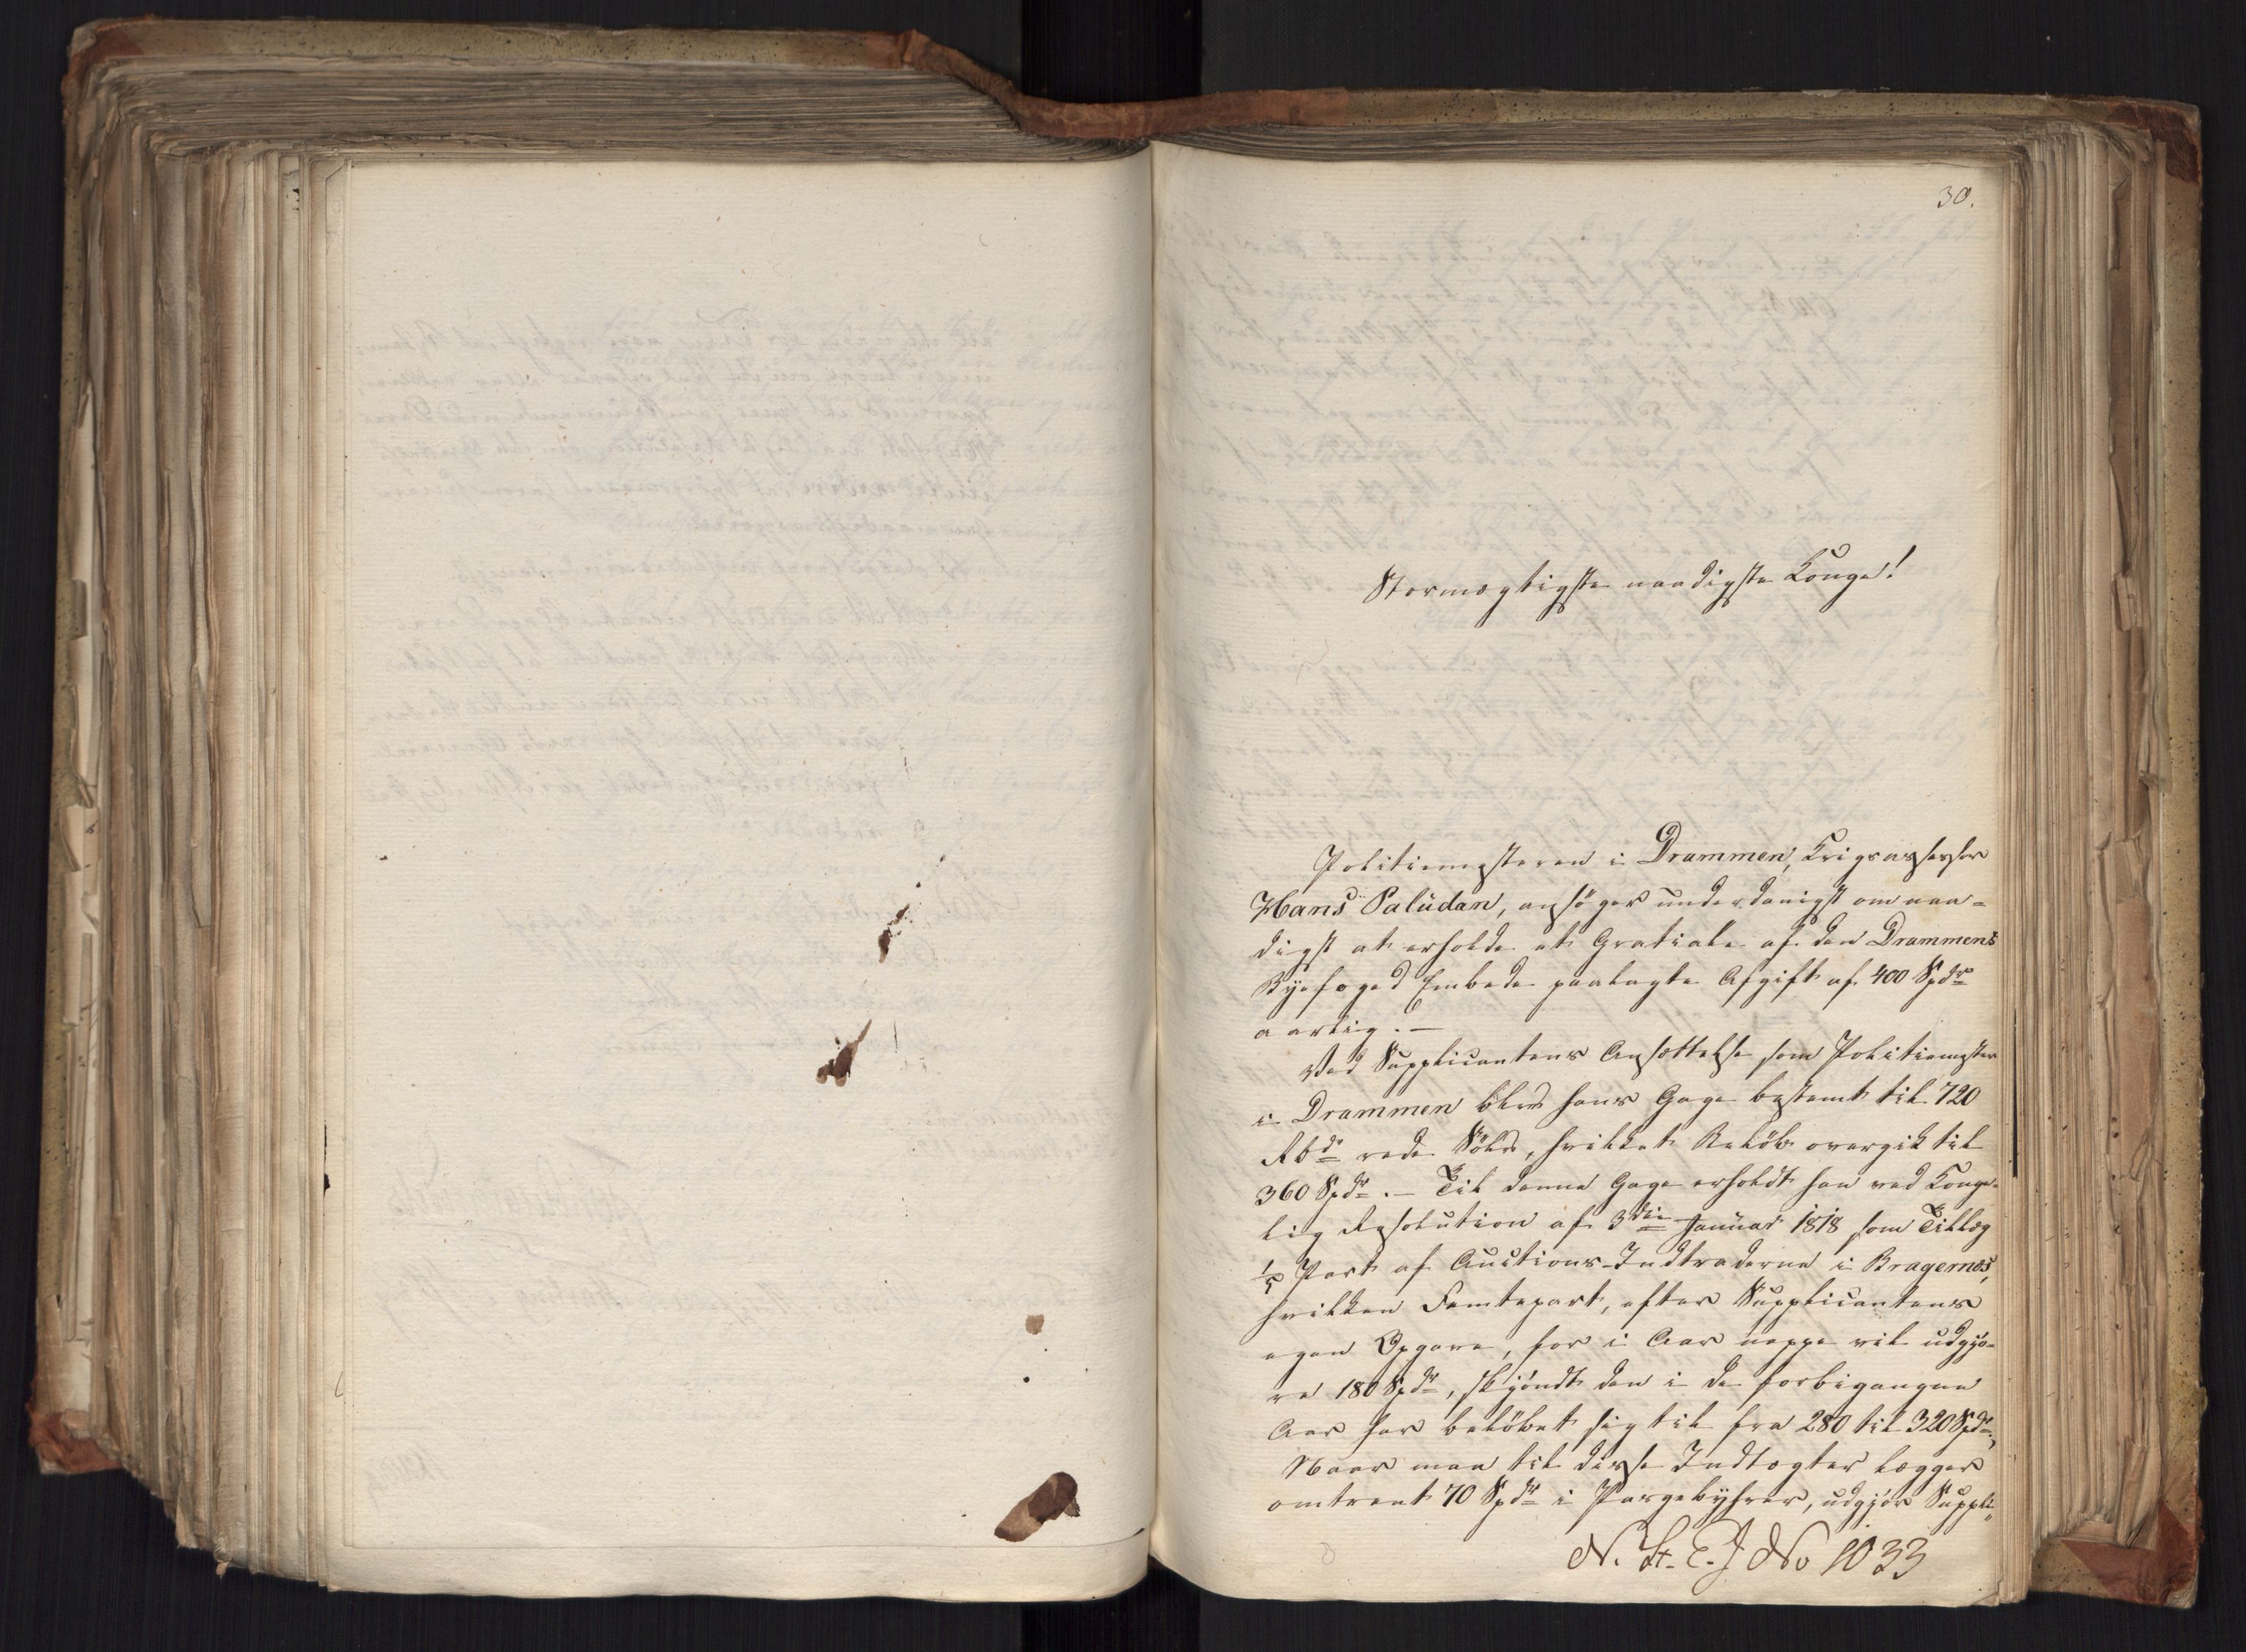 30.
Stormægtigste naadigste Konge!
Politiemesteren i Drammen, Krigsassessor
Hans Paludan, ansöger underdanigst om naa-
digst at erholde et Gratiale af den Drammens
Byefoged Embede paalagte Afgift af 400 Spdr
aarlig. —
Ved Supplicantens Ansættelse som Politiemester
i Drammen blev hans Gage bestemt til 720
Rbdr rede Sölv, hvilket Belöb overgik til
360 Spdr. — Til denne Gage erholdt han ved Konge-
lig Resolution af 3die Januar 1818 som Tillæg
1/5 Part af Auctions-Indtraderne i Bragernæs,
hvilken Femtepart, efter Supplicantens
egen Opgave, for i Aar neppe vil udgjö-
re 180 Spdr, skjöndt den i de forbigangne
Aar har belöbet sig til fra 280 til 320 Spdr.,
Naar man til disse Indtægter lægger
omtrent 70 Spdr i Pasgebyhrer, udgjör Suppli-
N. St. E. J No 1033